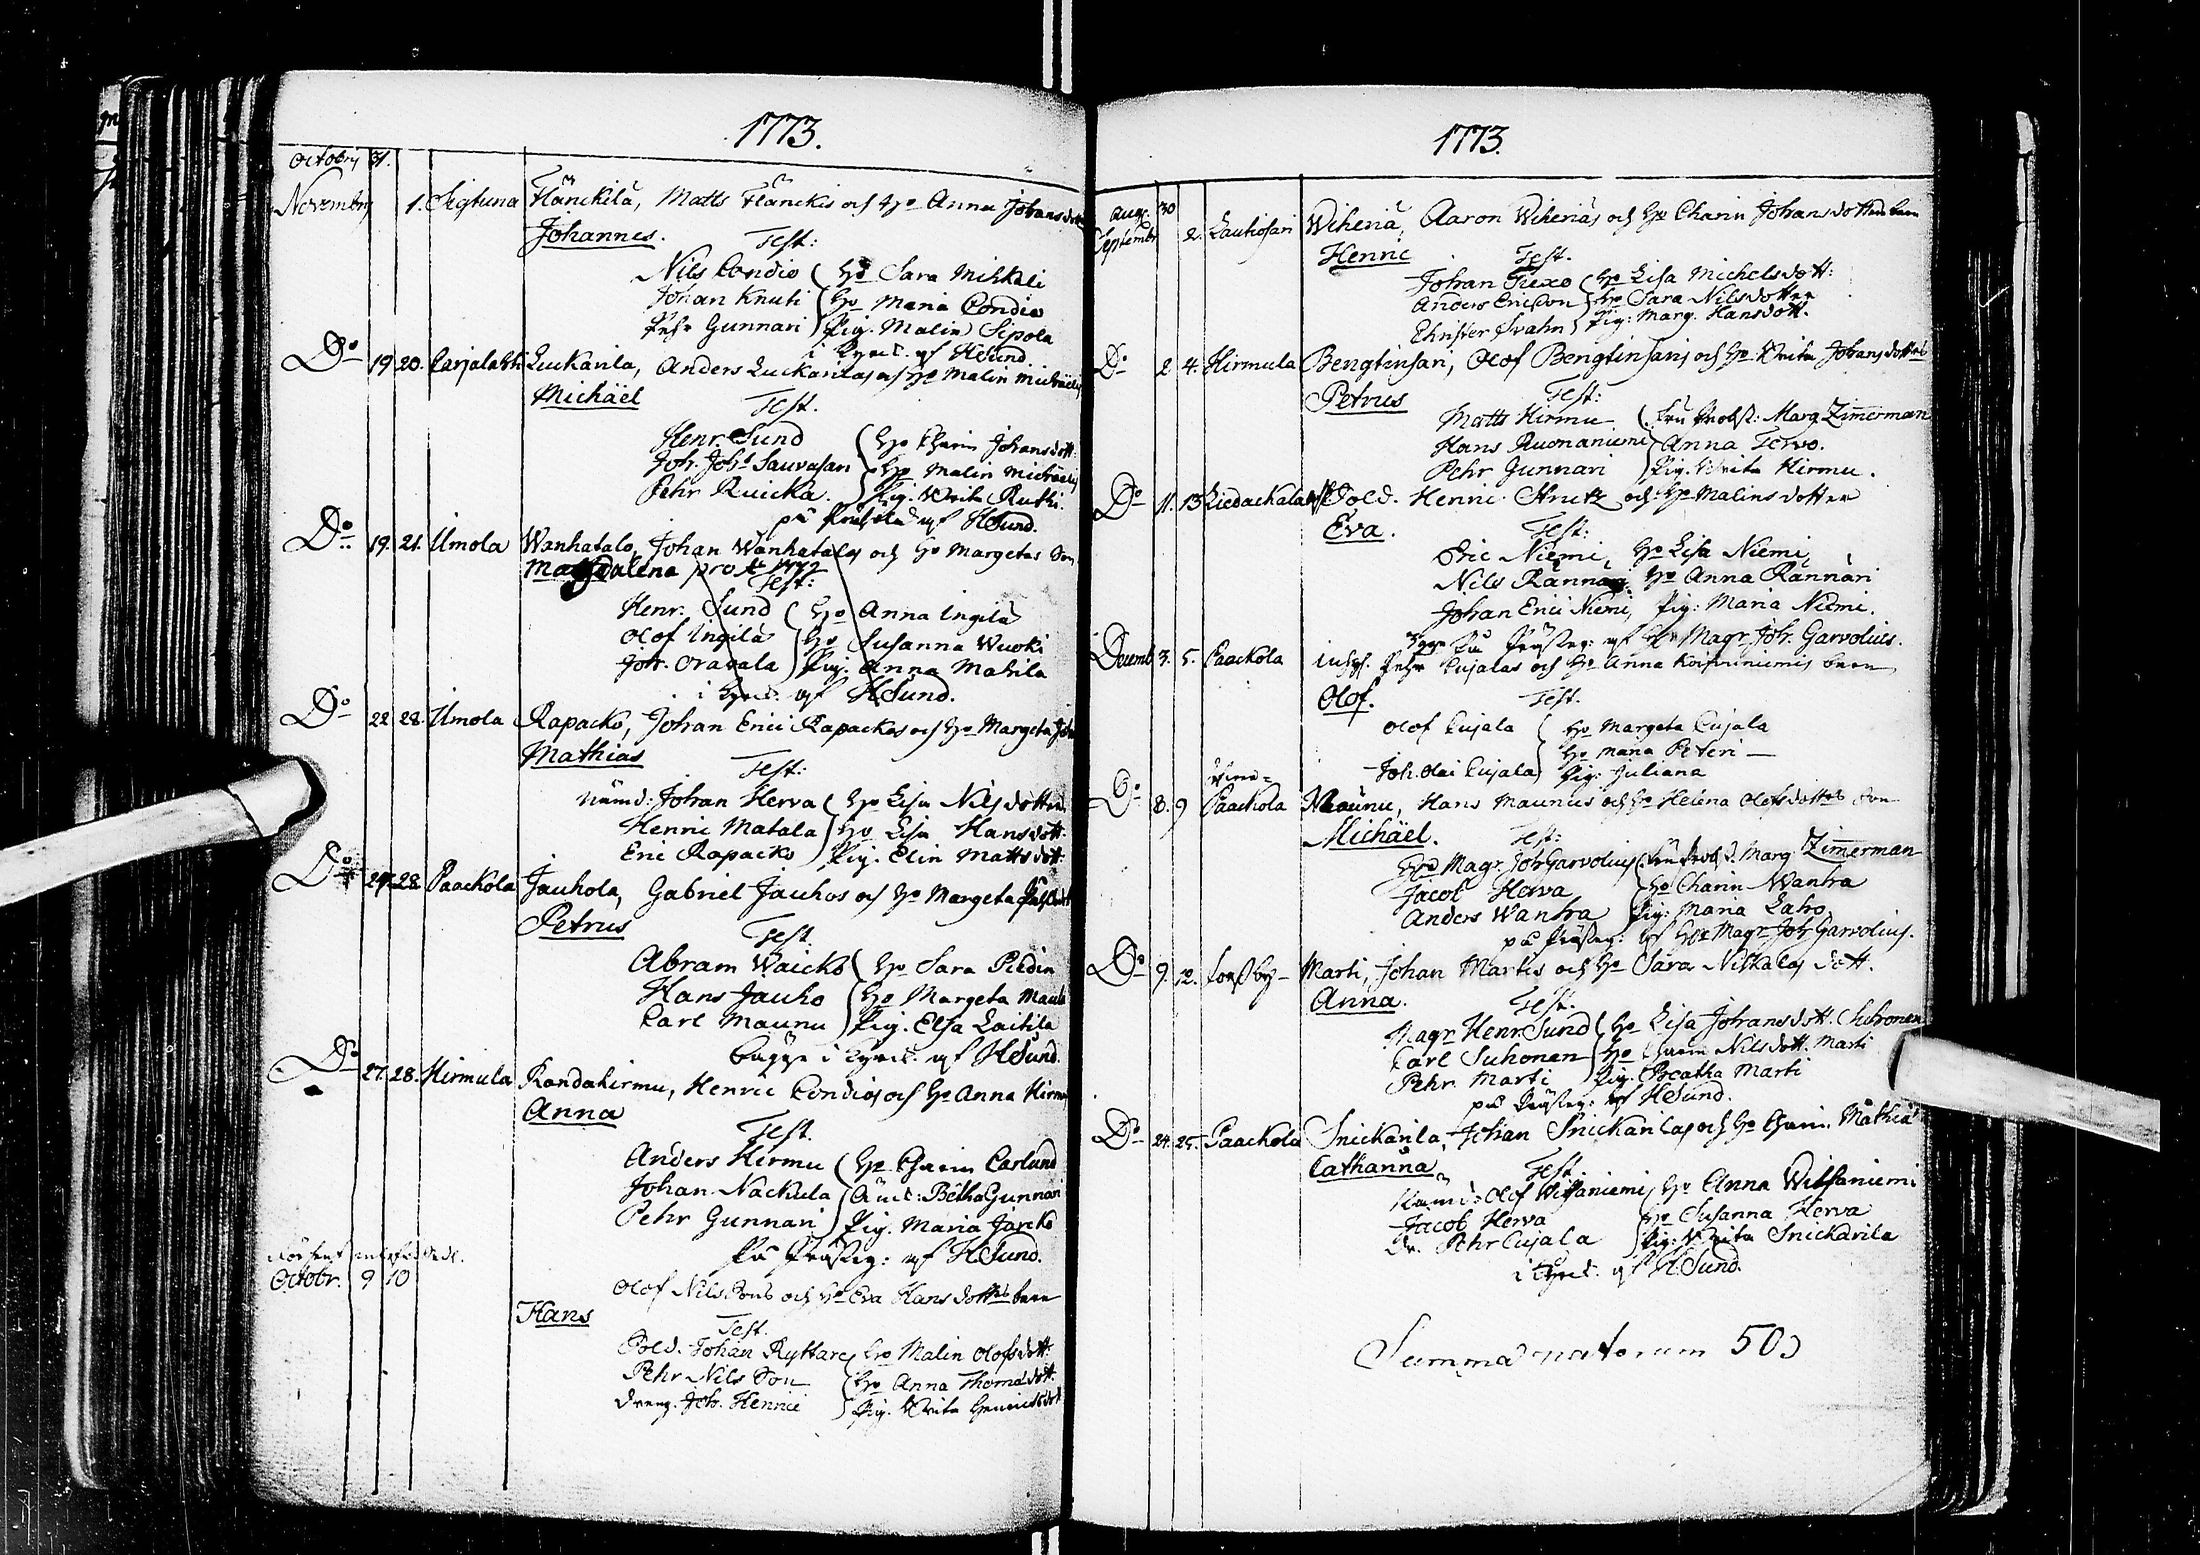 1773.
Octobr 31.
Novembr 1. Sigtuna Flänckilä, Matts Flänckis och H:o Anna Johansdott
Johannes.
Test:
Nils Condio H:o Sara Mihkali
Johan Knuti H:o Maria Condia
Pehr Gunnari Pig. Malin Sipola
i Kyrk. af HSund.
D:o 19 20. Carjalahti Luckarila, Anders Luckarilas och H:o Malin Michäels
Michäel
Test.
Henr. Sund H:o Charin Johansdott.
Joh. Joh:s Sauvasari H:o Malin Michäels
Pehr Ruicka. Pig. Ruthi.
på af HSund.
D:o 19. 21. Umola Wanhatalo, Johan Wanhatalos och H:o Margetas
Magdalena pro A:o 1772
Test:
Henr. Sund H:o Anna Ingilä
Olof Ingilä H:o Susanna Wuoki
Joh. Oravala Pig. Anna Matvila
i Kyrk. af HSund.
D:o 22 28. Umola Rapacko, Johan Erici Rapackos och H:o Margeta
Mathias
Test:
Nämd: Johan Herva H:o Lisa Nilsdotter
Henric Matala H:o Lisa Hansdott.
Eric Rapacko Pig. Elin Mattsdott:
D:o 24 28 Paackola Jauhola, Gabriel Jauhos och H:o Margeta
Petrus
Test.
Abram Waicko H:o Sara Piedin
Hans Jauho H:o Margeta
Carl Maunu Pig. Elsa Laitila
bägge i Kyrk. af HSund.
D:o 27. 28. Hirmula Randahirmu, Henric Condios och H:o Anna Hirmu
Anna
Test.
Anders Hirmu H:o Charin Carlund
Johan Nackula Bëtha Gunnari
Pehr Gunnari Pig. Maria Järcko
På Prästeg: af HSund.
Octobr. 9 10
Olof Nilssons och H:o Eva Hansdott:s barn
Hans
Test.
Sold. Johan Ryttare H:o Malin Olofsdott:
Pehr Nilsson H:o Anna Thomädott.
Dreng. Joh. Henric Pig.
1773.
Aug. 30
Septembr 2. Lauhiosari Wiheriä, Aaron Wiheriäs och H:o Charin Johansdotters barn
Henric
Test.
Johan Tuxo H:o Lisa Michelsdott:
Anders Ericson H:o Sara Nilsdotter
Christer Svahn Pig: Marg. Hansdott.
D:o 2 4. Hirmula Bengtinsari, Olof Bengtinsaris och H:o Johansdotters
Petrus
Test:
Matts Hirmu Marg. Zimmerman
Hans Ruonaniemi Anna Tervo.
Pehr Gunnari Pig. Hirmu.
D:o 11. 13 Kiedackala Sold. Henric Strutz och H:o Malins dotter
Eva.
Test:
Eric Niemi, H:o Lisa Niemi,
Nils Rännari, H:o Anna Rännäri
Johan Erici Niemi, Pig: Maria Niemi.
På Prästeg: af H:r Magr. Joh. Garvolius.
Decemb. 3. 5. Paackola Inhys. Pehr Cujalas och H:o Anna Korpiniemis barn
Olof.
Test.
Olof Cujala H:o Margeta Cujala
H:o Maria Peteri
Joh. Olai Cujala Pig: Juliana
D:o 8. 9 Paackola Maunu, Hans Maunus och H:o Helena Olofsdotters Son
Michäel.
Test:
Magr. Joh Garvolius Marg. Zimmerman
Jacob Herva H:o Charin Wanha
Anders Wanha Pig: Maria Laho
på Prästeg: af H:r Magr. Joh Garvolius.
D:o 9. 12. Torssby Marti, Johan Martis och H:o Sara Niskalas dott.
Anna.
Test.
Magr Henr. Sund H:o Lisa Johansdott. Suhonen
Carl Suhonen H:o Charin Nilsdott. Marti
Pehr Marti Pig. Beatha Marti
på Prästeg: af HSund.
D:o 24. 25. Paackola Snickarila, Johan Snickarilas och H:o Charin Mathiæ
Catharina
Test.
Nämd: Olof Witsaniemi H:o Anna Witsaniemi
Jacob Herva H:o Susanna Herva
Dr. Pehr Cujala Pig: Snickarila
i Kyrk. af HSund.
Summa natorum 50